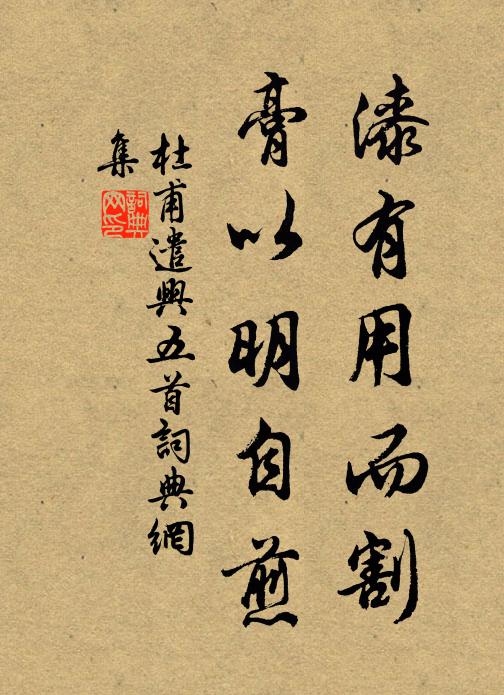 漆有用而割
膏以明自煎
杜甫遣興五首詞典網
集
詞典
网印